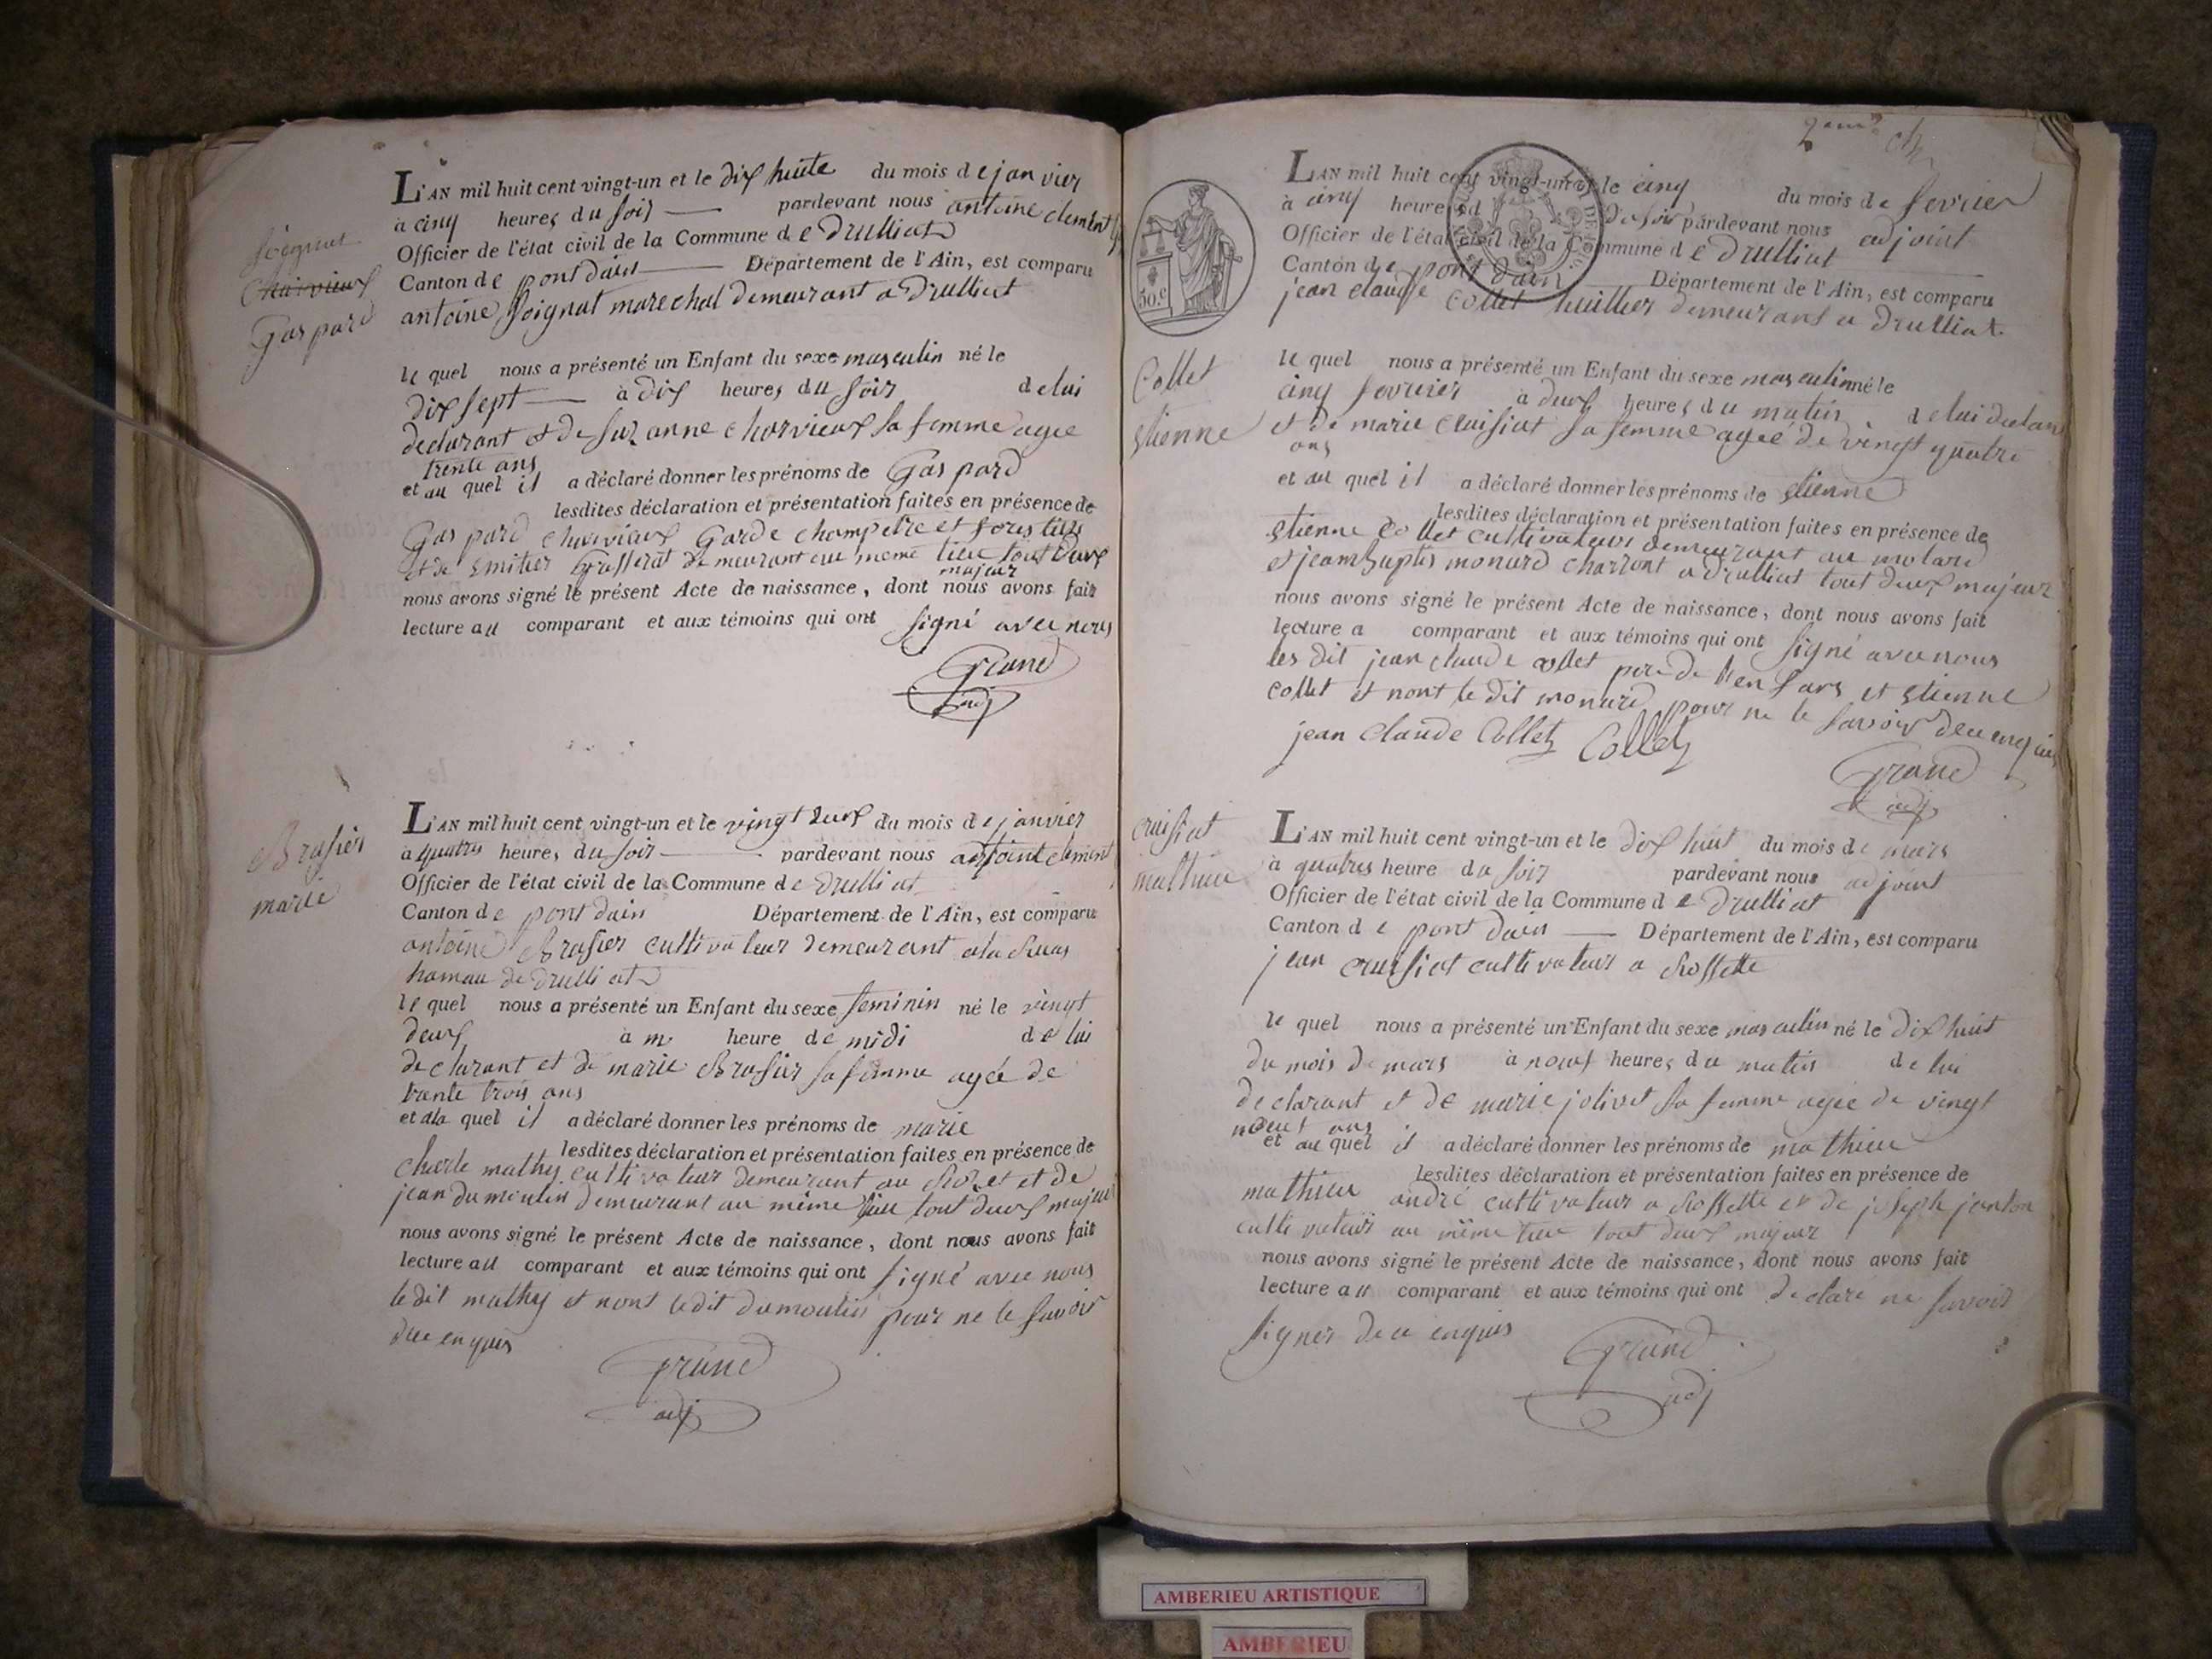 Soignat
Charvieux
Gaspard
L'AN mil huit cent vingt-un et le dix huite du mois de janvier
à cinq heures du soir pardevant nous antoine clement
Officier de l'état civil de la Commune de Drulliat
Canton de pont dain Département de l'Ain, est comparu
antoine Soignat marechal demeurant a Drulliat
le quel nous a présenté un Enfant du sexe masculin né le
dix sept à dix heures du soir de lui
declarant et de suzanne charvieux sa femme agee
trente ans
et au quel il a déclaré donner les prénoms de Gaspard
lesdites déclaration et présentation faites en présence de
Gaspard charvieux Garde champetre et
et de demeurant au meme lieu tout deux
majeur
nous avons signé le présent Acte de naissance, dont nous avons fait
lecture au comparant et aux témoins qui ont signé avec nous
Grand
adj
Brasier
marie
L'AN mil huit cent vingt-un et le vingt deux du mois de janvier
à quatre heures du soir pardevant nous adjoint clement
Officier de l'état civil de la Commune de Drulliat
Canton de pont dain Département de l'Ain, est comparu
antoine Brasier cultivateur demeurant
hamau de Drulliat
le quel nous a présenté un Enfant du sexe feminin né le vingt
deux à heure de midi de lui
declarant et de marie Brasier sa femme agée de
trente trois ans
et ala quel il a déclaré donner les prénoms de marie
lesdites déclaration et présentation faites en présence de
charle mathy cultivateur demeurant au et de
jean dumoulin demeurant au même lieu tout deux majeur
nous avons signé le présent Acte de naissance, dont nous avons fait
lecture au comparant et aux témoins qui ont signé avec nous
le dit mathy et nont le dit dumoulin pour ne le savoir
due enquis
Grand
adj
50.c
Collet
etienne
L'AN mil huit cent vingt-un et le cinq du mois de fevrier
à cinq heures du soir pardevant nous adjoint
Officier de l'état civil de la Commune de Drulliat
Canton de pont dain Département de l'Ain, est comparu
jean claude Collet huillier demeurant a Drulliat
le quel nous a présenté un Enfant du sexe masculin né le
cinq fevrier à deux heures du matin de lui declan
et de marie cruisiat sa femme agée de vingt quatre
ans
et au quel il a déclaré donner les prénoms de etienne
lesdites déclaration et présentation faites en présence de
etienne Collet cultivateur demeurant au molard
et jean baptis monard charront a drulliat tout deux majeur
nous avons signé le présent Acte de naissance, dont nous avons fait
lecture a comparant et aux témoins qui ont signé avec nous
les dit jean claude collet pere de lenfans et etienne
collet et nont le dit monard pour ne le savoir dece enquis
jean claude Collet Collet
Grand
adj
cruisiat
mathieu
L'AN mil huit cent vingt-un et le dix huit du mois de mars
à quatres heure du soir pardevant nous adjoint
Officier de l'état civil de la Commune de Drulliat
Canton de pont dain Département de l'Ain, est comparu
jean cruisiat cultivateur a Rossette
le quel nous a présenté un Enfant du sexe masculin né le dix huit
du mois de mars à neuf heures du matin de lui
declarant et de marie jolivet sa femme agée de vingt
neuf ans
et au quel il a déclaré donner les prénoms de mathieu
lesdites déclaration et présentation faites en présence de
mathieu andré cultivateur a Rossette et de joseph janton
cultivateur au même lieu tout deux majeur
nous avons signé le présent Acte de naissance, dont nous avons fait
lecture au comparant et aux témoins qui ont declaré ne savoir
signer de ce enquis
Grand
adj
AMBERIEU ARTISTIQUE
AMBERIEU